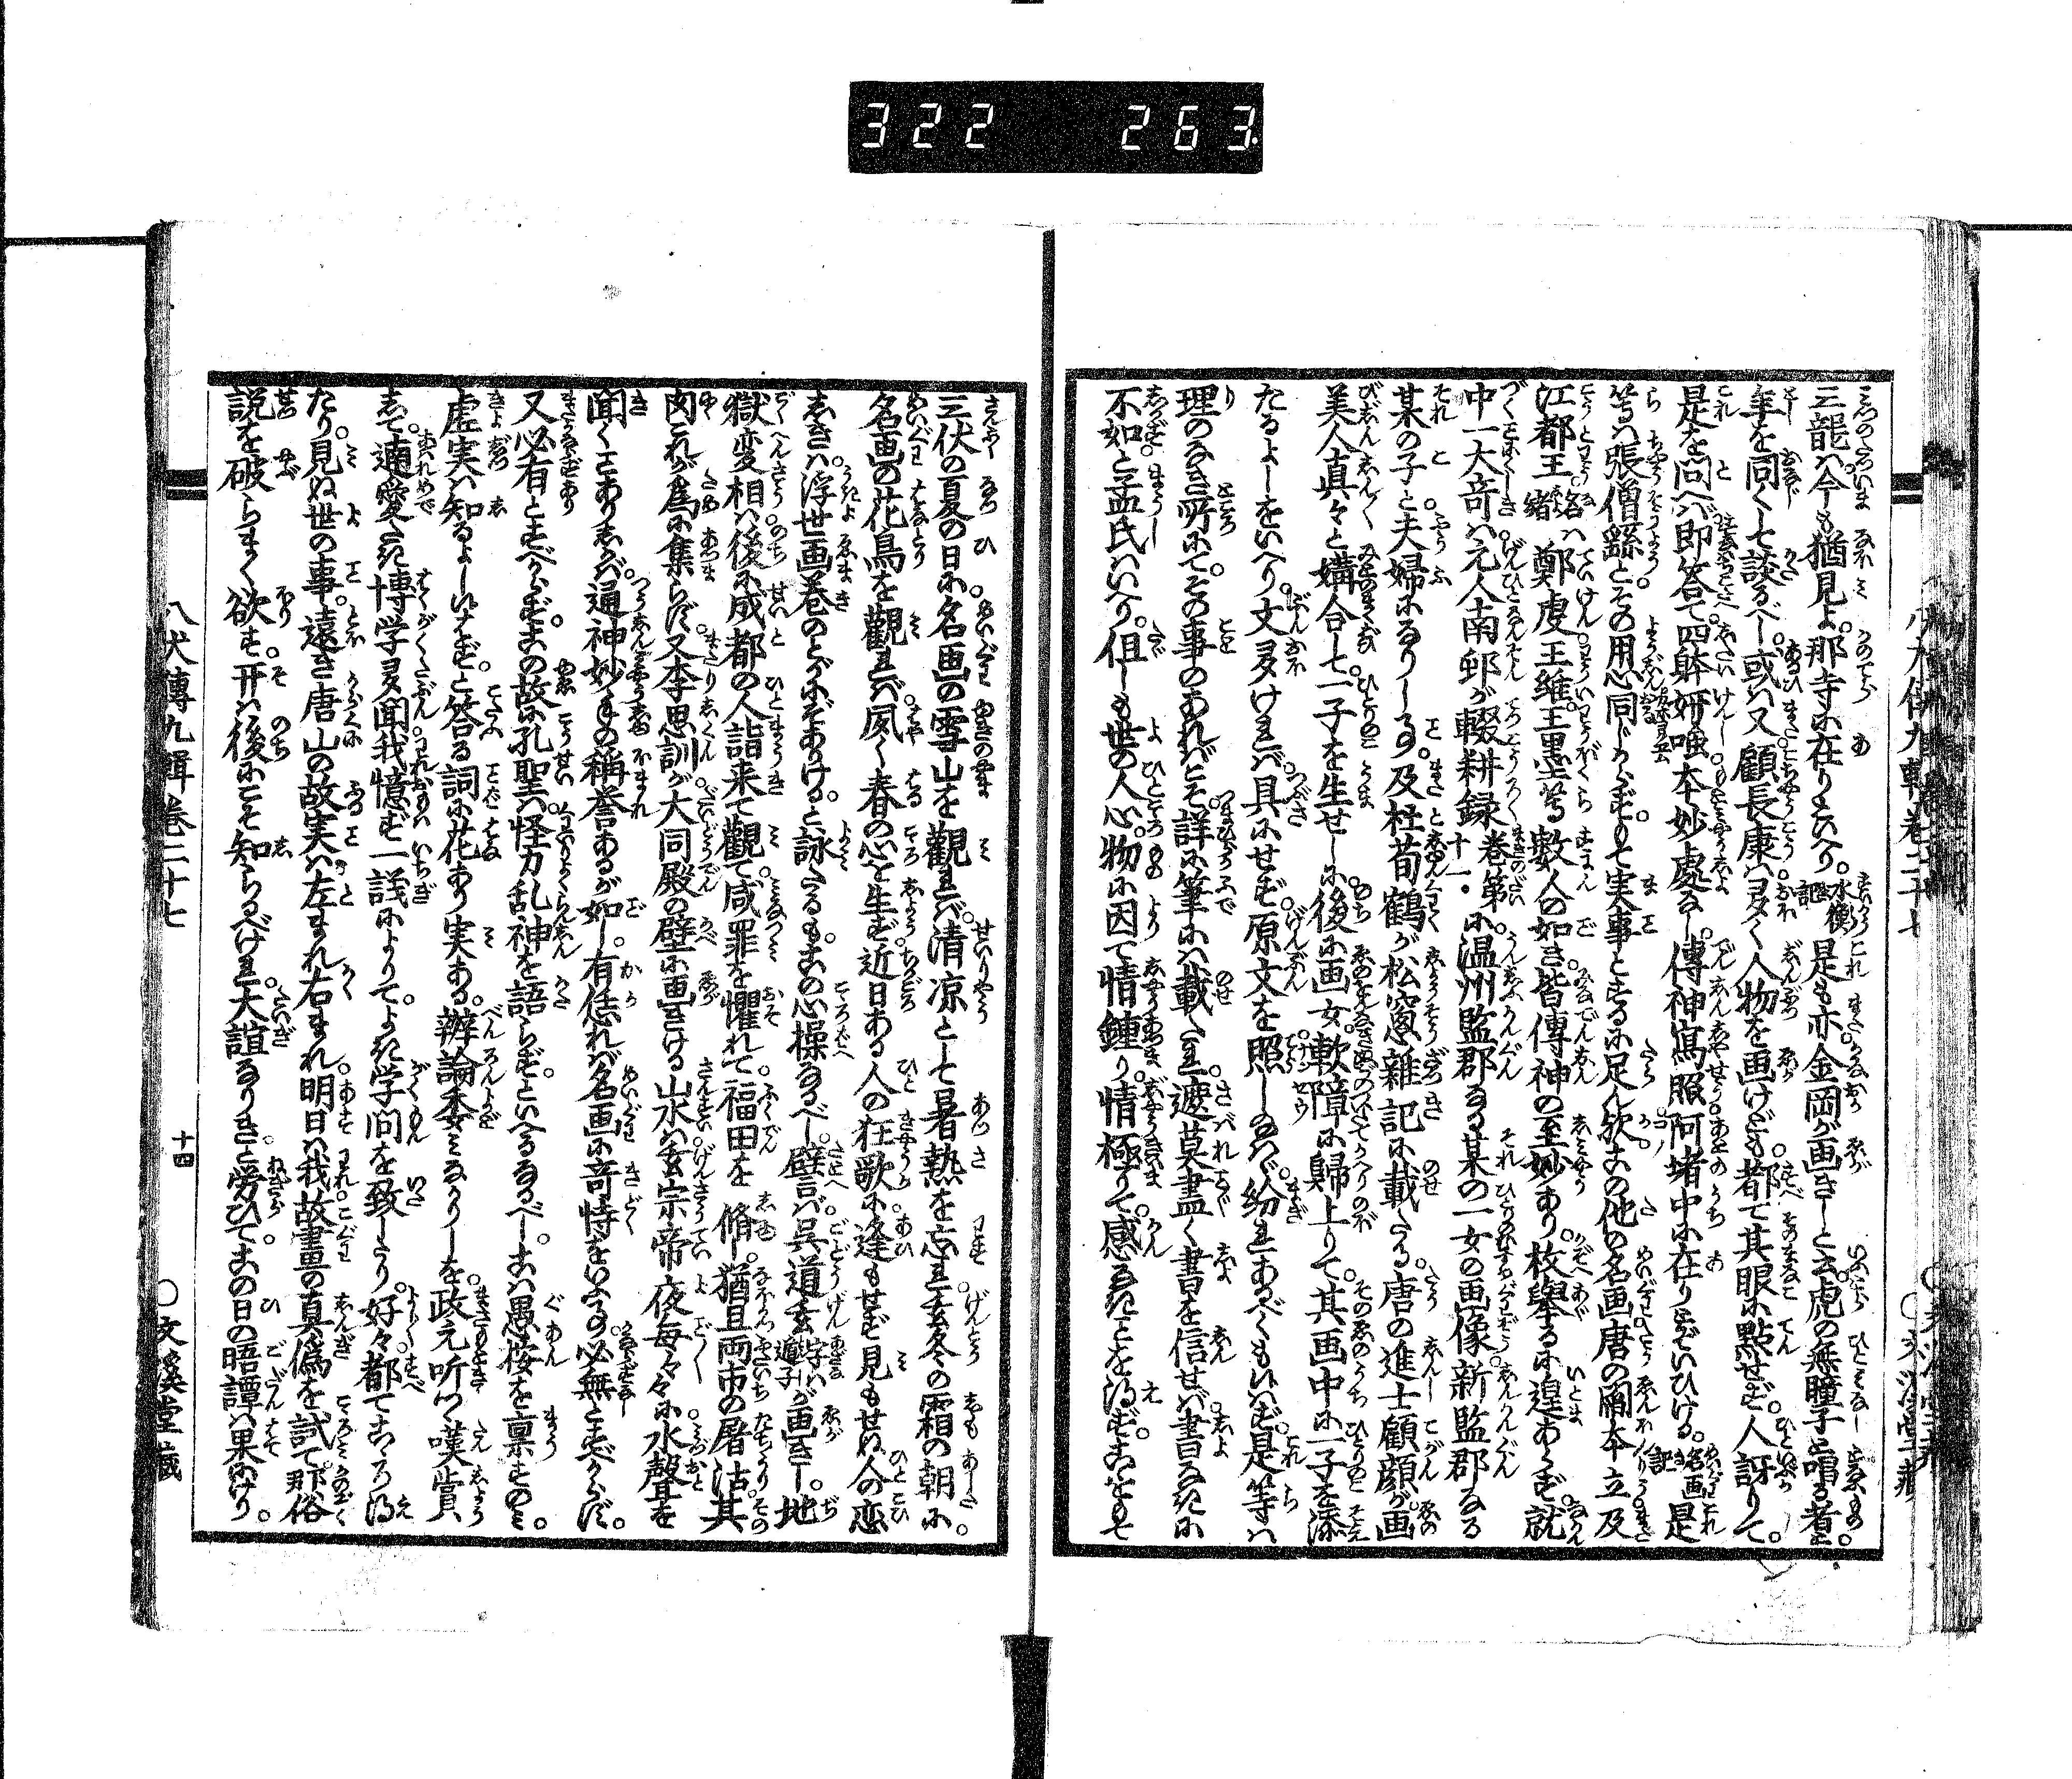 322 263
三龍ハ今も猶見よ。那寺に在りといへり。水衡記 是も亦金岡が画きしと云。虎の無瞳子と唱る者と。
年を同くして談るべし。或ハ又顧長康ハ多く人物を画けども。都て其眼に點せず。人訝りて。
是を问へバ即答て。四躰妍嗤本妙處なし。傳神寫照阿堵中に在りとぞいひける。名画記 是
等ハ張僧繇とその用心同じからず。もて実事とするに足ん欤。この他の名画唐の閻本立及
江都王 名ハ緒 鄭虔王維王墨等数人の如き。皆傳神の至妙あり。枚擧るに遑あらず。就
中一大奇ハ。元人南邨が輟耕録 巻第十一 に。温州監郡なる某の一女の画像。新監郡なる
某の子と。夫婦になりし事。及杜荀鶴が松窓雑記に載たる。唐の進士顧顔が。画
美人真々と媾合して。一子を生せしに。後に画女。軟障に歸上りて。其画中に一子を添
たるよしをいへり。文多けれバ具にせず。原文を照しなバ。紛れあるべくもいはず。是等ハ
理のなき所にて。その事のあれバこそ。詳に筆にハ載たれ。遮莫盡く書を信せバ書なきに
不如と。孟氏ハいへり。但しも世の人心。物に因て情鍾り。情極りて。感なきことを得ず。こをもて
三伏の夏の日に。名画の雪山を觀れバ。清凉として暑熱を忘れ。玄冬の霜の朝に。
名画の花鳥を觀れバ。夙く春の心を生ず。近日ある人の狂歌に。逢もせず見もせぬ人の恋
しきハ。浮世画巻のとがにぞありける。と詠たるも。この心操なるべし。譬バ呉道玄 字ハ道子 が画きし。地
獄変相ハ。後に成都の人詣来て觀て。咸罪を懼れて。福田を脩し。猶且両市の屠沽。其
肉これが為に集らず。又李思訓が。大同殿の壁に画きける山水ハ。玄宗帝夜毎々々に。水聲を
聞くことありしかバ。通神妙手の稱誉あるが如し。有恁れバ名画に竒特をいふもの。必無とすべからず。
又必有とすべからず。この故に孔聖ハ。怪力乱神を語らず。といへるなるべし。こハ愚按を禀すのミ。
虚実ハ知るよしいまだ。と答る詞に花あり実ある。辯論委ミなりしを。政元听つゝ嘆賞
して。適愛たき博学多聞。我憶ず一議によりて。よき学问を致したり。好々都てこゝろ得
たり。見ぬ世の事。遠き唐山の故実ハ左まれ右まれ。明日ハ我故畫の真偽を試て。那俗
説を破らまく欲す。开ハ後にこそ知らるべけれ。大誼なりき。と労ひて。この日の晤譚ハ果にけり。
八犬傳九輯巻二十七 十四 ○文溪堂藏